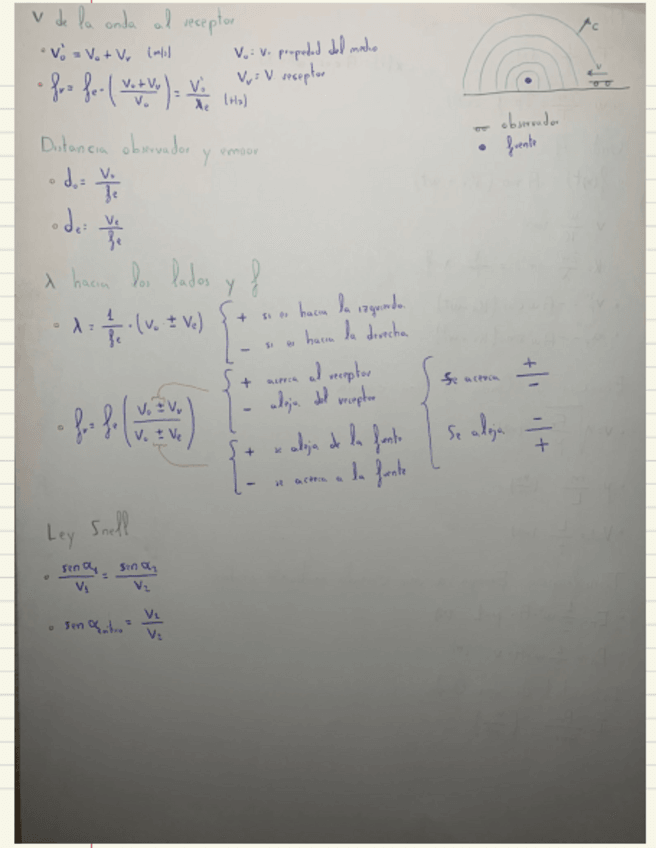 V de la onda al receptor
• V₀' = V₀ + Vᵣ (m/s)
V₀: V. propiedad del medio
Vᵣ: V receptor
• fᵣ = fₑ · (V₀+Vᵣ / V₀) = V₀' / λₑ (Hz)
C
V
observador
• fuente
Distancia observador y emisor
• d₀ = V₀ / fₑ
• dₑ: Vₑ / fₑ
λ hacia los lados y f
• λ = 1/fₑ · (V₀ ± Vₑ)
+ si es hacia la izquierda
- si es hacia la derecha
• fᵣ = fₑ (V₀ ± Vᵣ / V₀ ± Vₑ)
+ acerca al receptor
- aleja del receptor
+ se aleja de la fuente
- se acerca a la fuente
Se acerca + / -
Se aleja - / +
Ley Snell
• sen α₁ / V₁ = sen α₂ / V₂